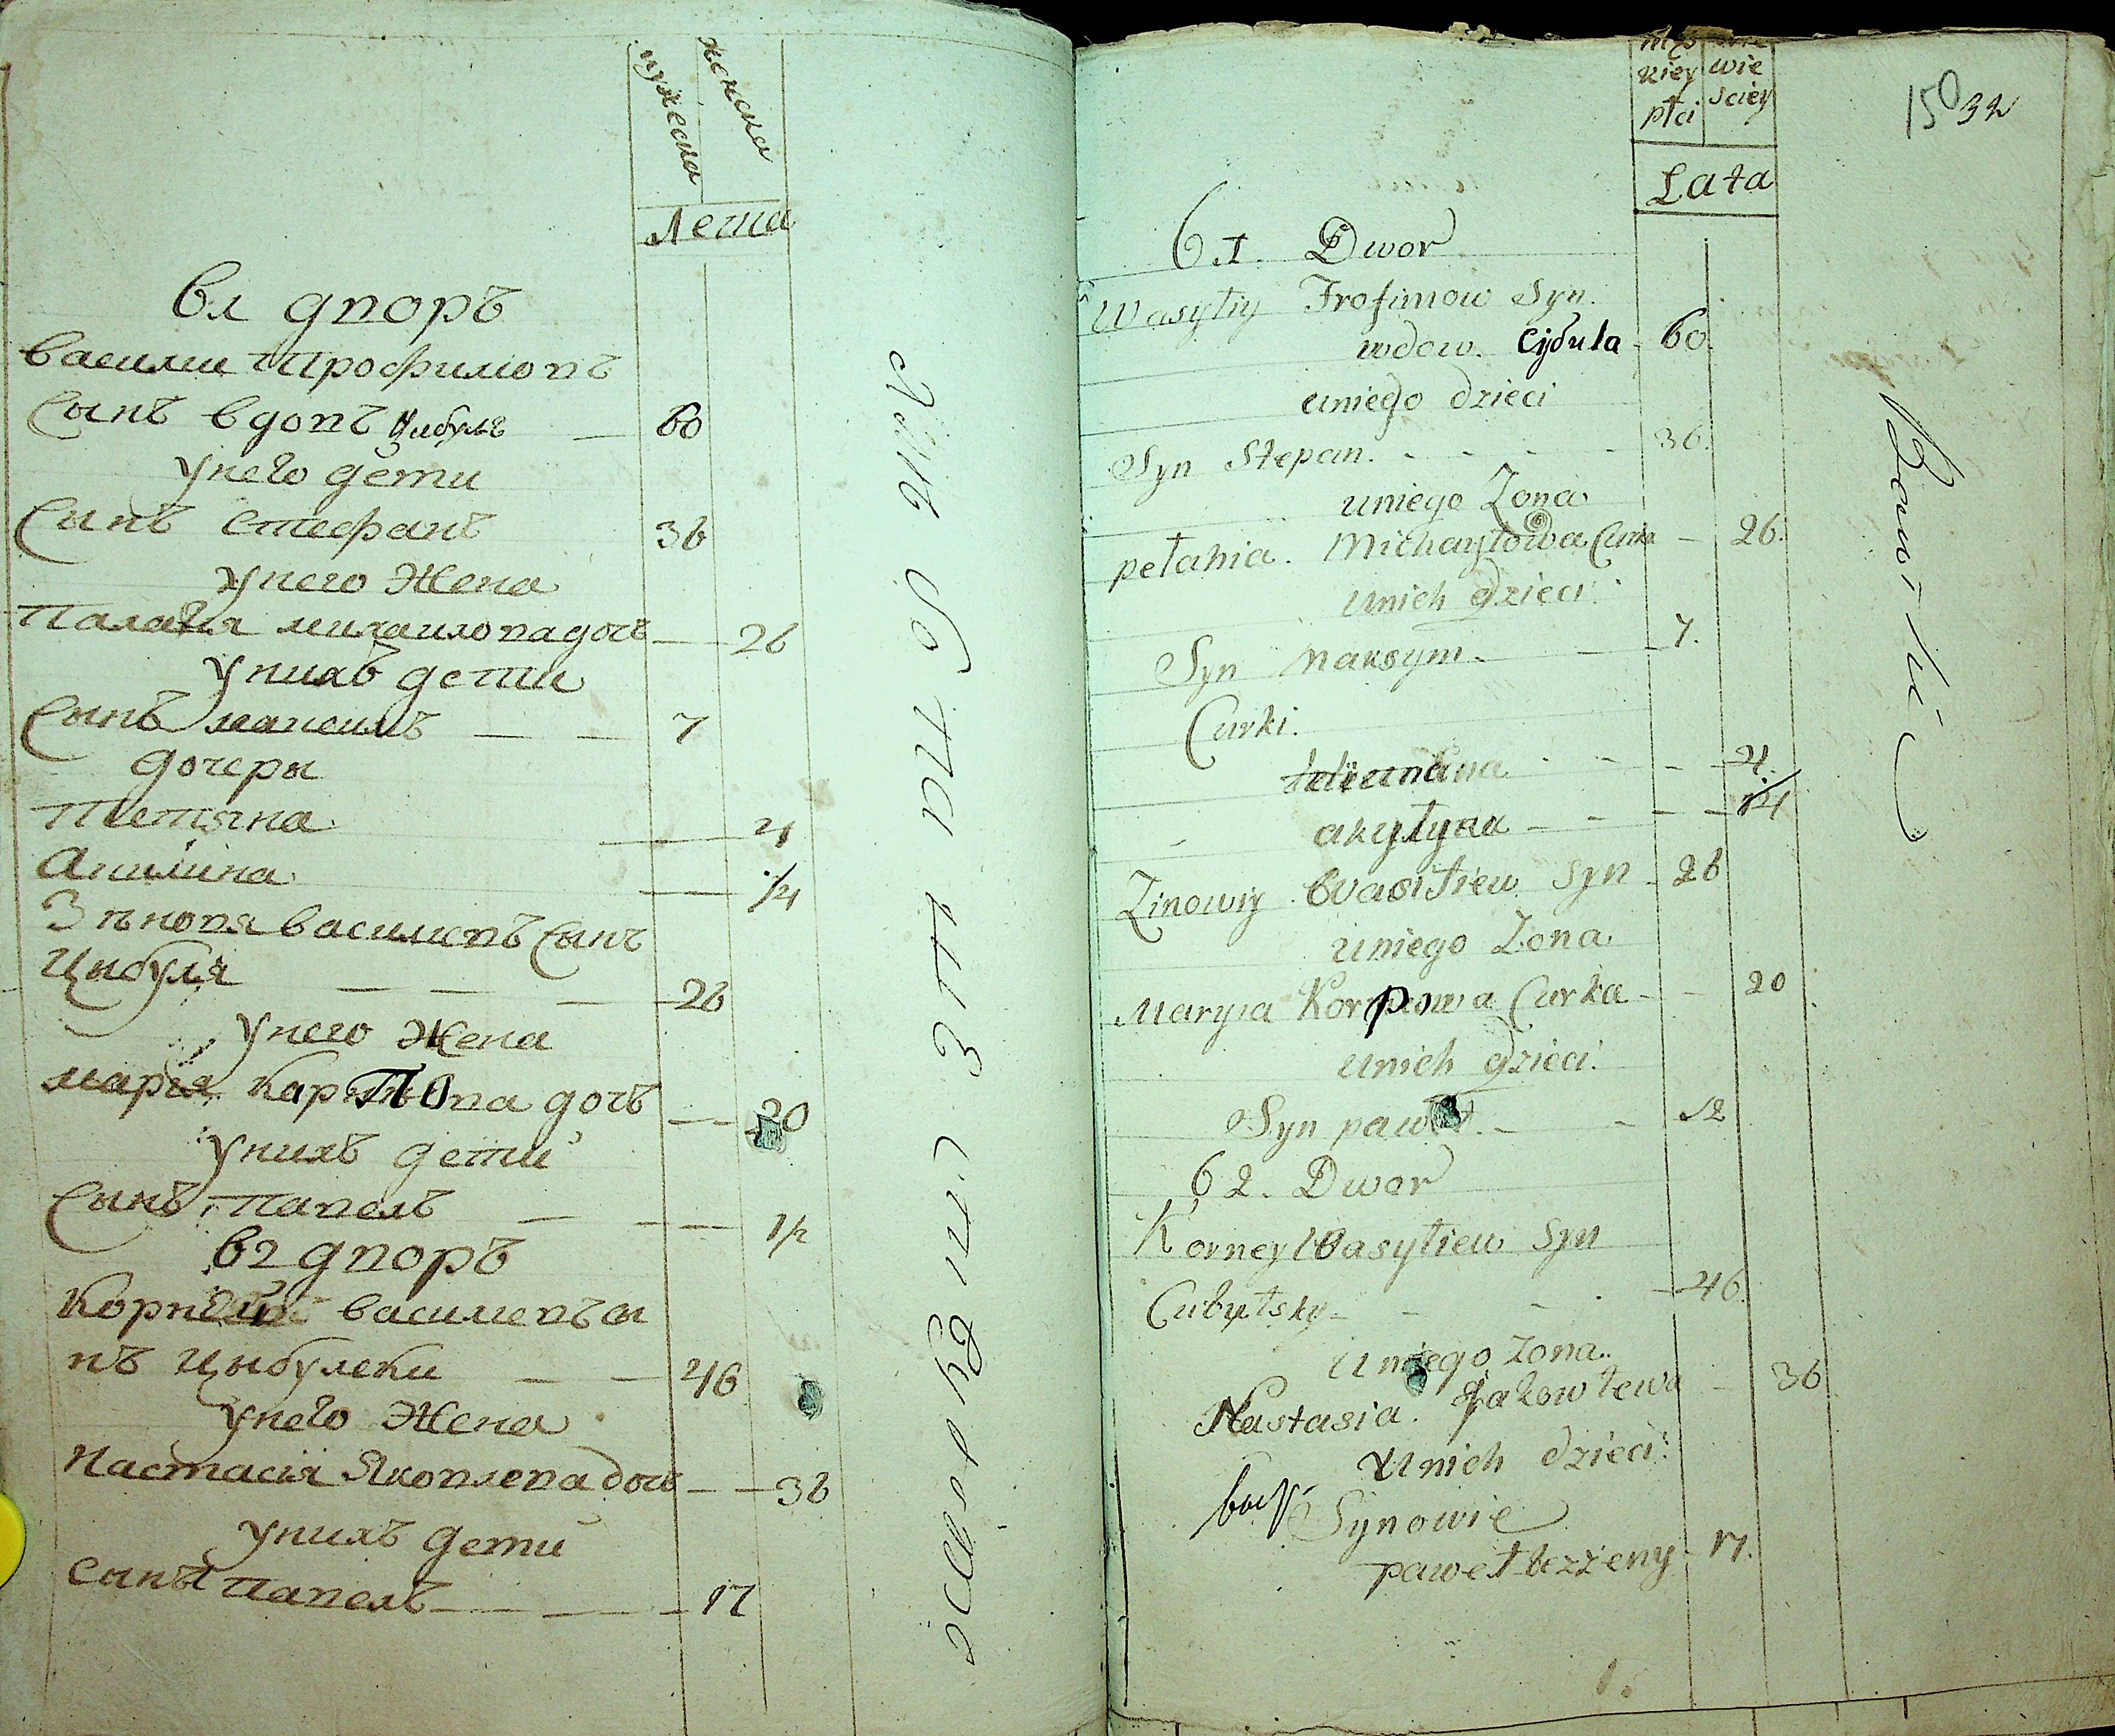 мужеска женска
Лета
61 дворъ
Василии Трофимовъ
Сынъ вдовъ Цибуля — 60
у него дети
Сынъ Стефанъ 36
у него жена
Палагия михаилова дочь — 26
у нихъ дети
Сынъ максимъ — — 7
дочеры
Тетяна — 4
Акилина — 1/4
Зѣновя василиевъ Сынъ
Цыбуля — — — 26
у него жена
мария Карпова дочь — 20
у нихъ дети
Сынъ Павелъ — — — 1/2
62 дворъ
Корнѣй василевъ сы
нъ Цыбулски — — 46
у него жена
Настасія Яковлева дочь — — 36
у нихъ дети
сынъ Павелъ — — — 17
męs kiey płci
wie sciey
Lata
150 32
61. Dwor
Wasyłiy Trofimow Syn.
wdow. Cybula 60.
uniego dzieci
Syn Stepan. - - - - 36.
uniego Zona
pełahia. Michayłowa Curka — 26.
unich dzieci:
Syn Maksym. — 7.
Curki.
- - - - 4.
akyłyna - - - - 1/4
Zinowiy Wasiłiew Syn 26
uniego Zona
Marya Korpowa Curka - - 20
unich dzieci:
Syn paweł. - - 1/2
62. Dwor
Korney Wasyliew Syn
Cubulsky - - - 46.
uniego Zona..
Nastasia. Jakowlewa — 36
unich dzieci:
Synowie
paweł bezżeny - 17.